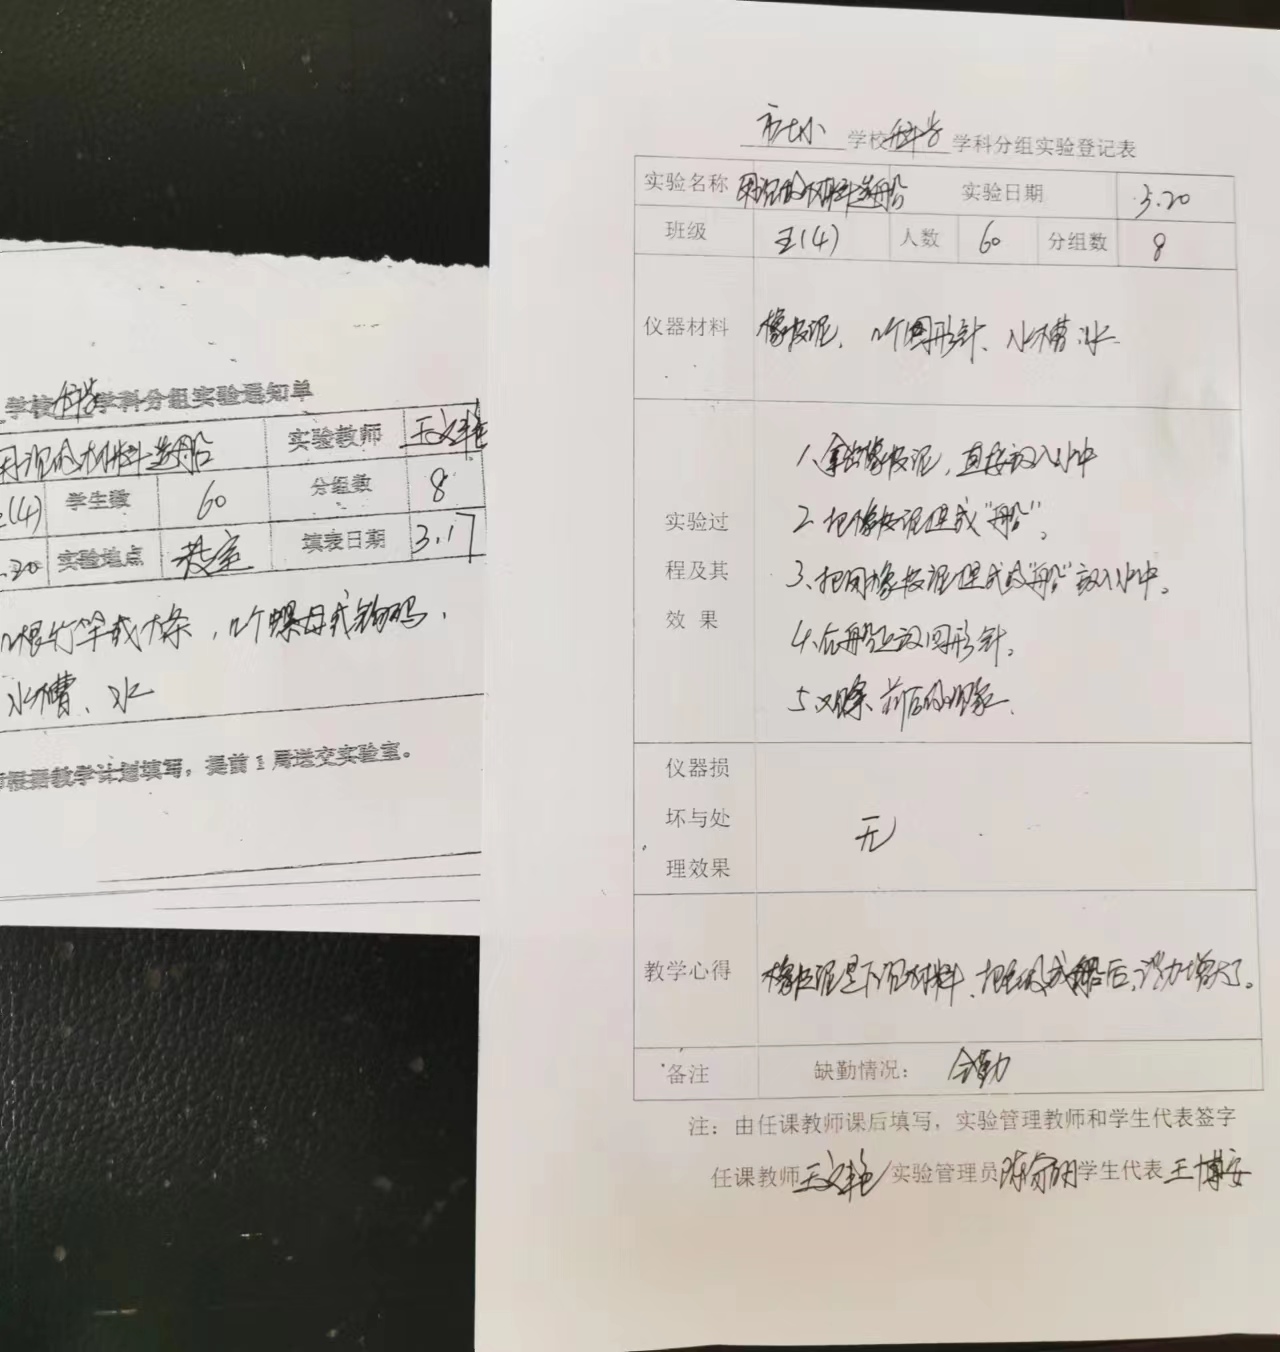 学校科学学科分组实验通知单
用沉的材料造船 实验教师 王文艳
(4) 学生数 60 分组数 8
.20 实验地点 教室 填表日期 3.17
几根竹竿或木条，几个螺母或钩码，
水槽、水
根据教学计划填写，提前1周送交实验室。
学校科学学科分组实验登记表
实验名称 用沉的材料造船 实验日期 3.20
班级 五(4) 人数 60 分组数 8
仪器材料 橡皮泥，几个回形针、水槽、水
实验过程及其效果
1、拿出橡皮泥，直接放入水中
2、把橡皮泥捏成"船"。
3、把用橡皮泥捏成的"船"放入水中。
4、在船上放回形针。
5、观察前后的现象.
仪器损坏与处理效果 无
教学心得 橡皮泥是下沉材料、把它做成船后，浮力增大了。
备注 缺勤情况： 全勤
注：由任课教师课后填写，实验管理教师和学生代表签字
任课教师 王文艳 实验管理员 学生代表 王博安